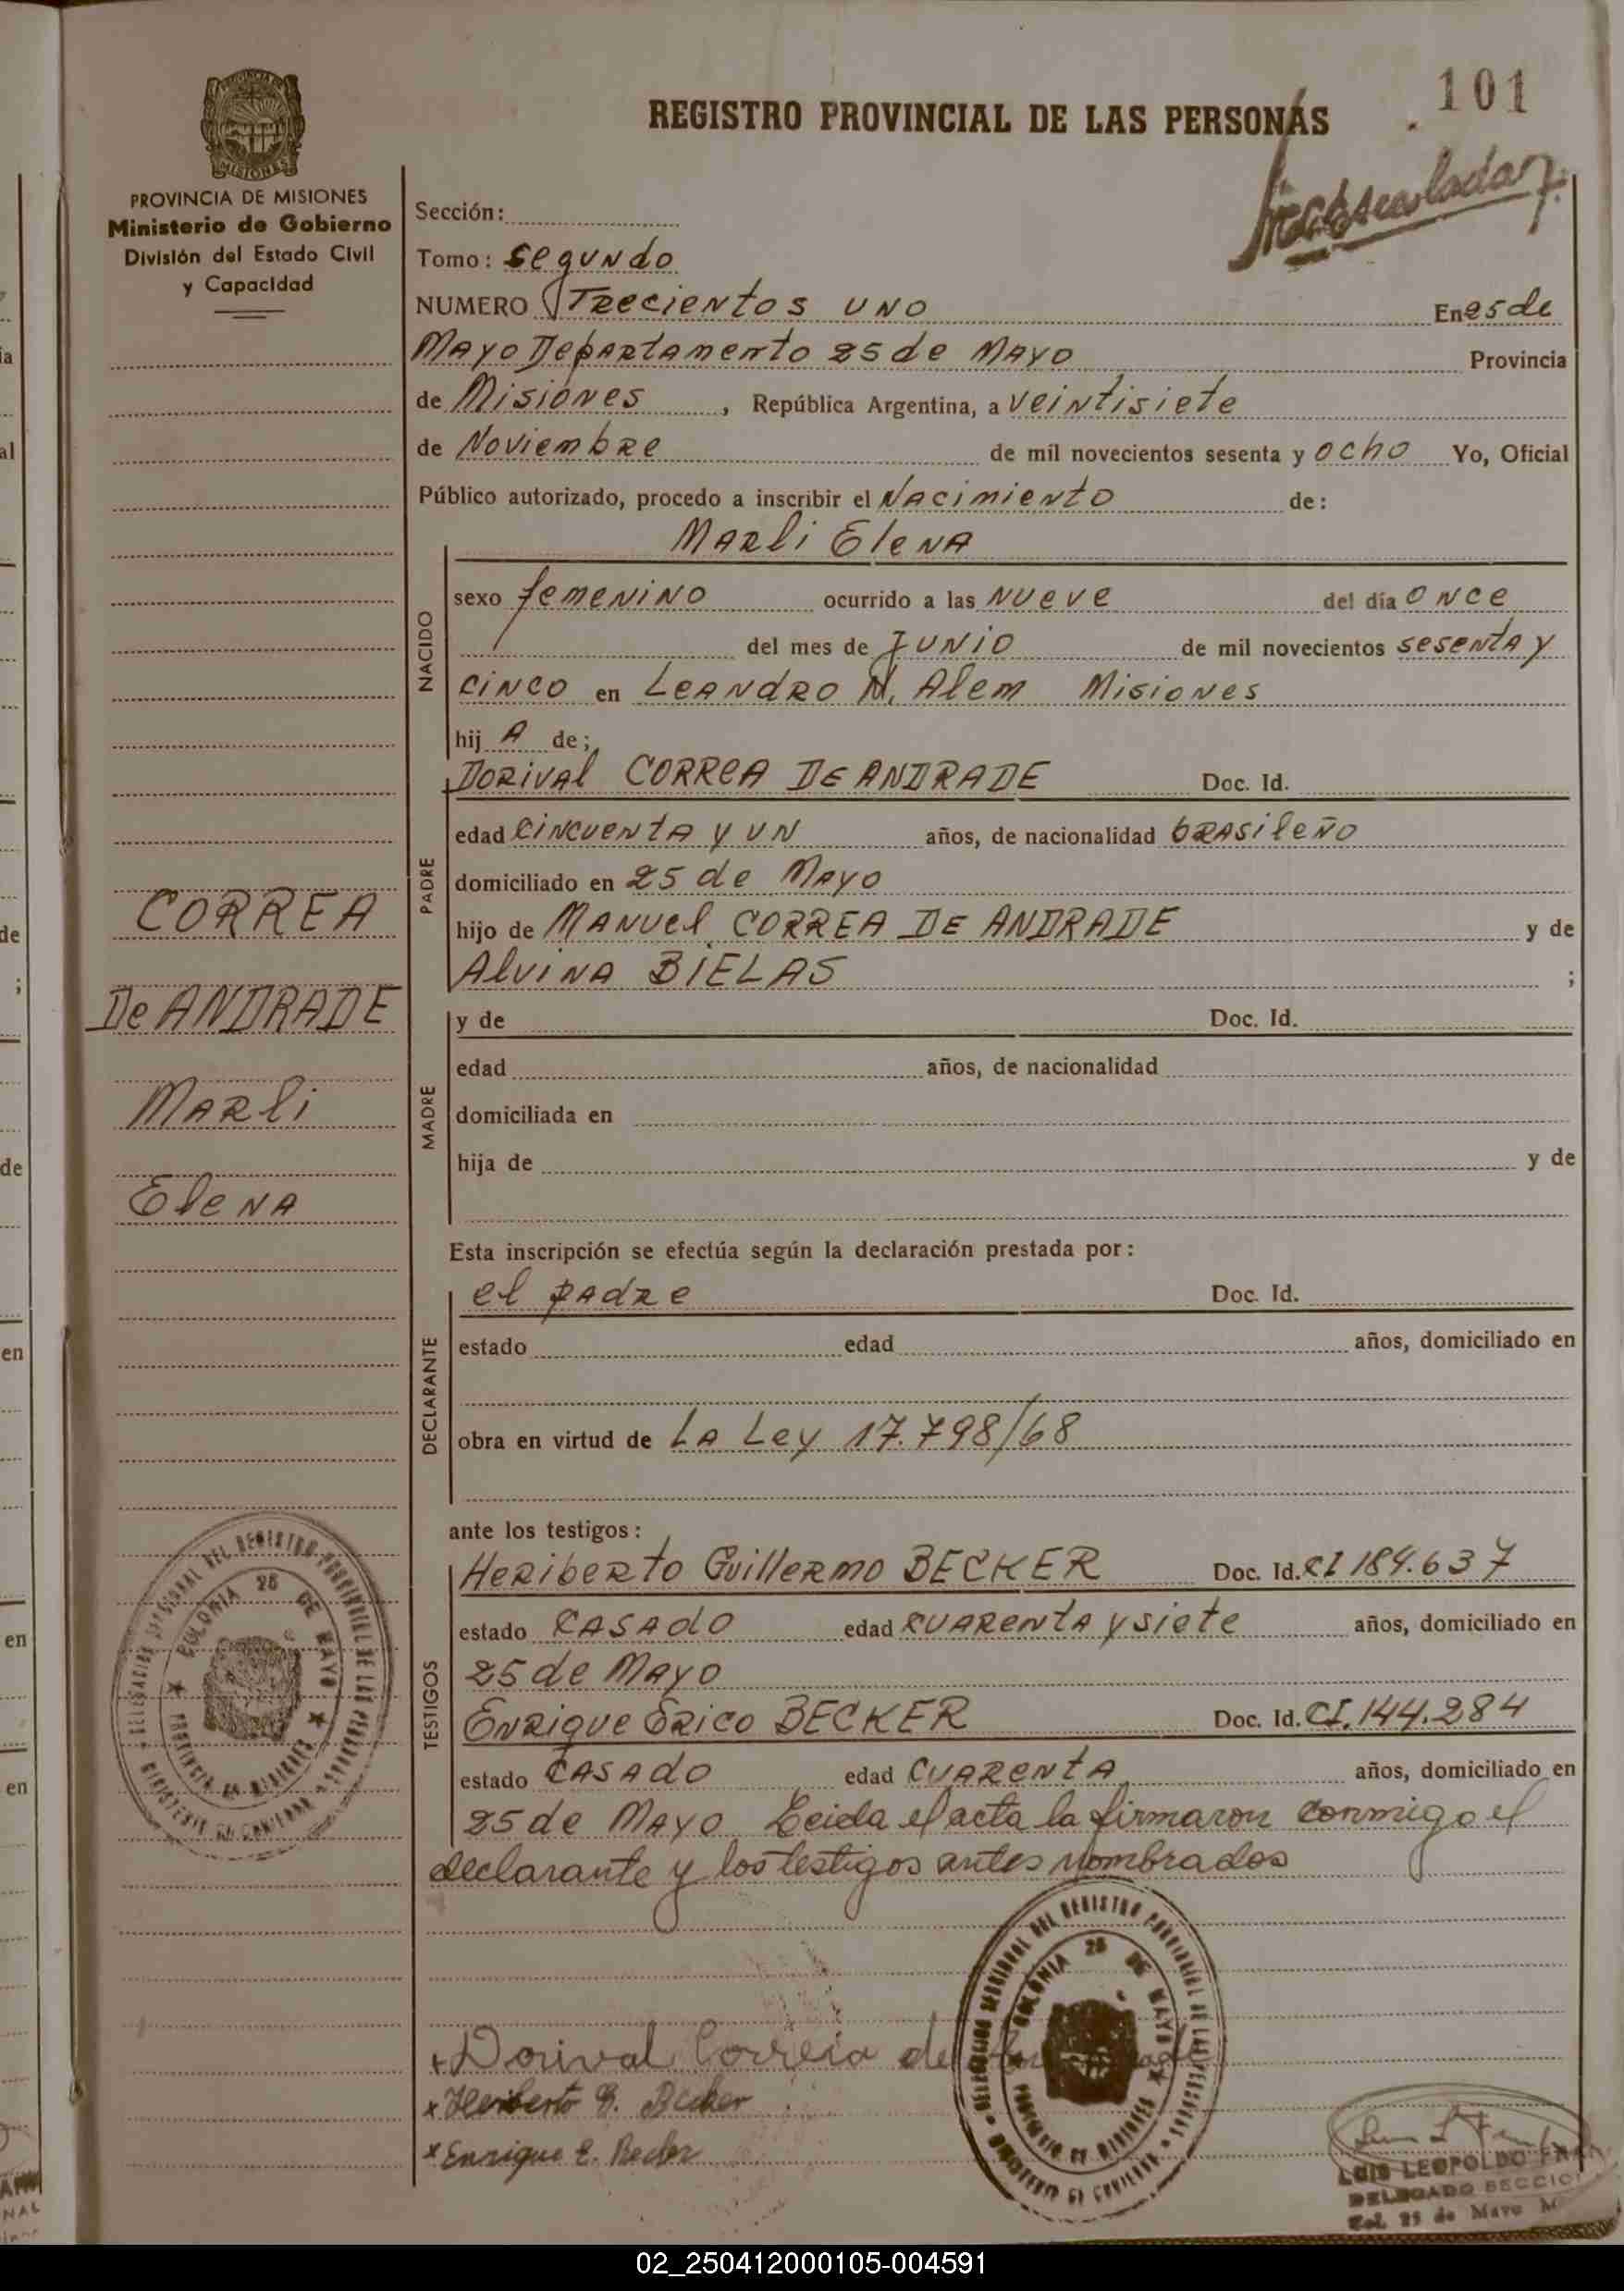 101
REGISTRO PROVINCIAL DE LAS PERSONAS
PROVINCIA DE MISIONES
Ministerio de Gobierno
División del Estado Civil
y Capacidad
Sección:
Tomo: Segundo
NUMERO Trecientos uno En 25 de
Mayo Departamento 25 de Mayo Provincia
de Misiones, República Argentina, a veintisiete
de Noviembre de mil novecientos sesenta y ocho Yo, Oficial
Público autorizado, procedo a inscribir el Nacimiento de:
Marli Elena
NACIDO
sexo femenino ocurrido a las nueve del día once
del mes de Junio de mil novecientos sesenta y
cinco en Leandro N. Alem Misiones
hij A de;
Dorival CORREA DE ANDRADE Doc. Id.
PADRE
edad cincuenta y un años, de nacionalidad brasileño
domiciliado en 25 de Mayo
hijo de Manuel CORREA DE ANDRADE y de
Alvina BIELAS ;
CORREA
De ANDRADE
Marli
Elena
MADRE
y de Doc. Id.
edad años, de nacionalidad
domiciliada en
hija de y de
Esta inscripción se efectúa según la declaración prestada por:
el padre Doc. Id.
DECLARANTE
estado edad años, domiciliado en
obra en virtud de La Ley 17.798/68
ante los testigos:
Heriberto Guillermo BECKER Doc. Id. CI 184.637
TESTIGOS
estado Casado edad cuarenta y siete años, domiciliado en
25 de Mayo
Enrique Erico BECKER Doc. Id. CI. 144.284
estado Casado edad cuarenta años, domiciliado en
25 de Mayo Leida el acta la firmaron conmigo el
declarante y los testigos antes nombrados
COLONIA 25 DE MAYO
PROVINCIA DE MISIONES
COLONIA 25 DE MAYO
PROVINCIA DE MISIONES
+ Dorival Correia de
x Heriberto G. Becker
x Enrique E. Becker
LUIS LEOPOLDO
DELEGADO SECCIO
Col. 25 de Mayo
02_250412000105-004591